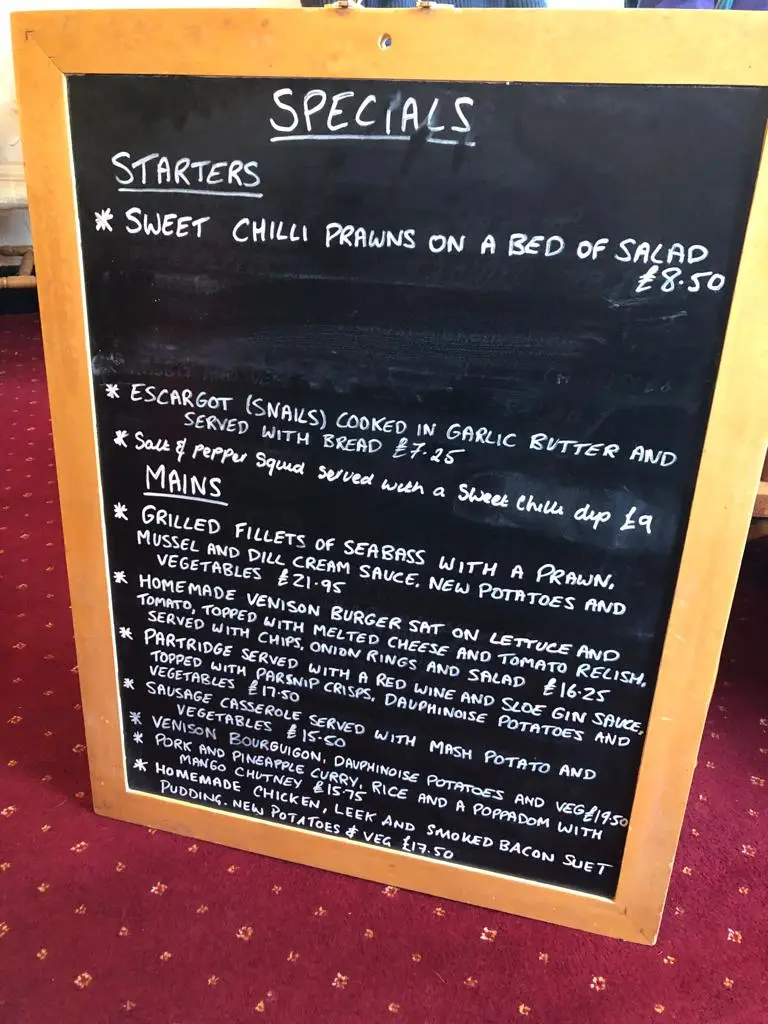 SPECIALS
STARTERS
* SWEET CHILLI PRAWNS ON A BED OF SALAD
£8.50
* ESCARGOT (SNAILS) COOKED IN GARLIC BUTTER AND
SERVED WITH BREAD £7.25
* Salt & pepper Squid served with a Sweet Chilli dip £9
MAINS
* GRILLED FILLETS OF SEABASS WITH A PRAWN,
MUSSEL AND DILL CREAM SAUCE, NEW POTATOES AND
VEGETABLES £21.95
* HOMEMADE VENISON BURGER SAT ON LETTUCE AND
TOMATO, TOPPED WITH MELTED CHEESE AND TOMATO RELISH,
SERVED WITH CHIPS, ONION RINGS AND SALAD £16.25
* PARTRIDGE SERVED WITH A RED WINE AND SLOE GIN SAUCE,
TOPPED WITH PARSNIP CRISPS, DAUPHINOISE POTATOES AND
VEGETABLES £17.50
* SAUSAGE CASSEROLE SERVED WITH MASH POTATO AND
VEGETABLES £15.50
* VENISON BOURGUIGON, DAUPHINOISE POTATOES AND VEG £19.50
* PORK AND PINEAPPLE CURRY, RICE AND A POPPADOM WITH
MANGO CHUTNEY £15.75
* HOMEMADE CHICKEN, LEEK AND SMOKED BACON SUET
PUDDING. NEW POTATOES & VEG £17.50